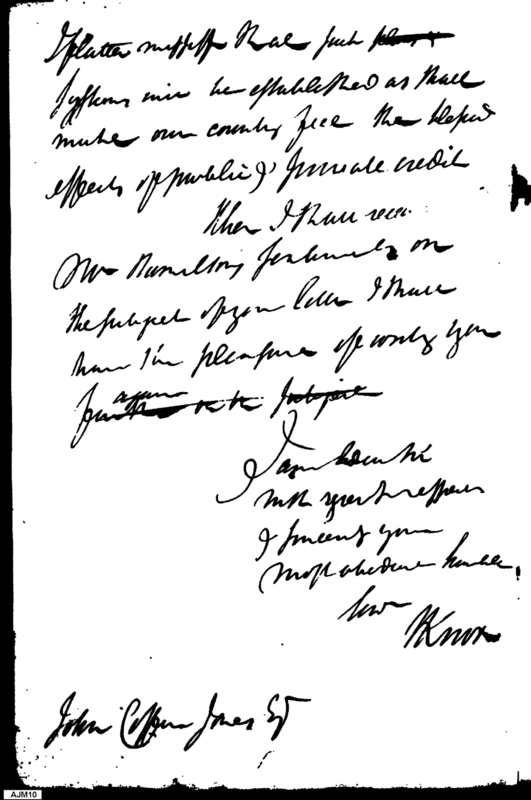 I flatter myself that such
systems will be established as shall
make our country feel the blessed
effects of public & private credit
When I shall rece
Mr Hamiltons sentiments on
the subject of your letter I shall
have the pleasure of writing you
again on the subject
I am
with great respect
& sincerity your
most obedient humble
Serv
HKnox
John Coffin Jones Esq
AJM10